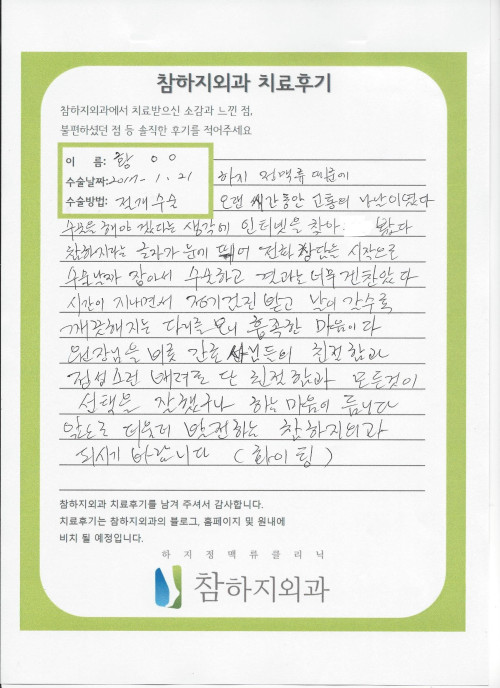 참하지외과 치료후기
참하지외과에서 치료받으신 소감과 느낀 점,
불편하셨던 점 등 솔직한 후기를 적어주세요
이 름: 황 O O
수술날짜: 2017-1.21
수술방법: 절개수술
하지 정맥류 때문에
오랜 시간동안 고통의 나날이였다
수술을 해야 겠다는 생각에 인터넷을 찾아 봤다
참하지라는 글자가 눈에 띄어 전화 상담을 시작으로
수술날짜 잡아서 수술하고 결과는 너무 괜찮았다
시간이 지나면서 정기검진 받고 날이 갈수록
깨끗해지는 다리를 보니 흡족한 마음이다
원장님을 비롯 간호사님들의 친절함과
정성스런 배려로 단 친절함과 모든것이
선택을 잘했구나 하는 마음이 듭니다
앞으로 더욱더 발전하는 참하지외과
되시기 바랍니다 (화이팅)
참하지외과 치료후기를 남겨 주셔서 감사합니다.
치료후기는 참하지외과의 블로그, 홈페이지 및 원내에
비치 될 예정입니다.
하지정맥류클리닉
참하지외과